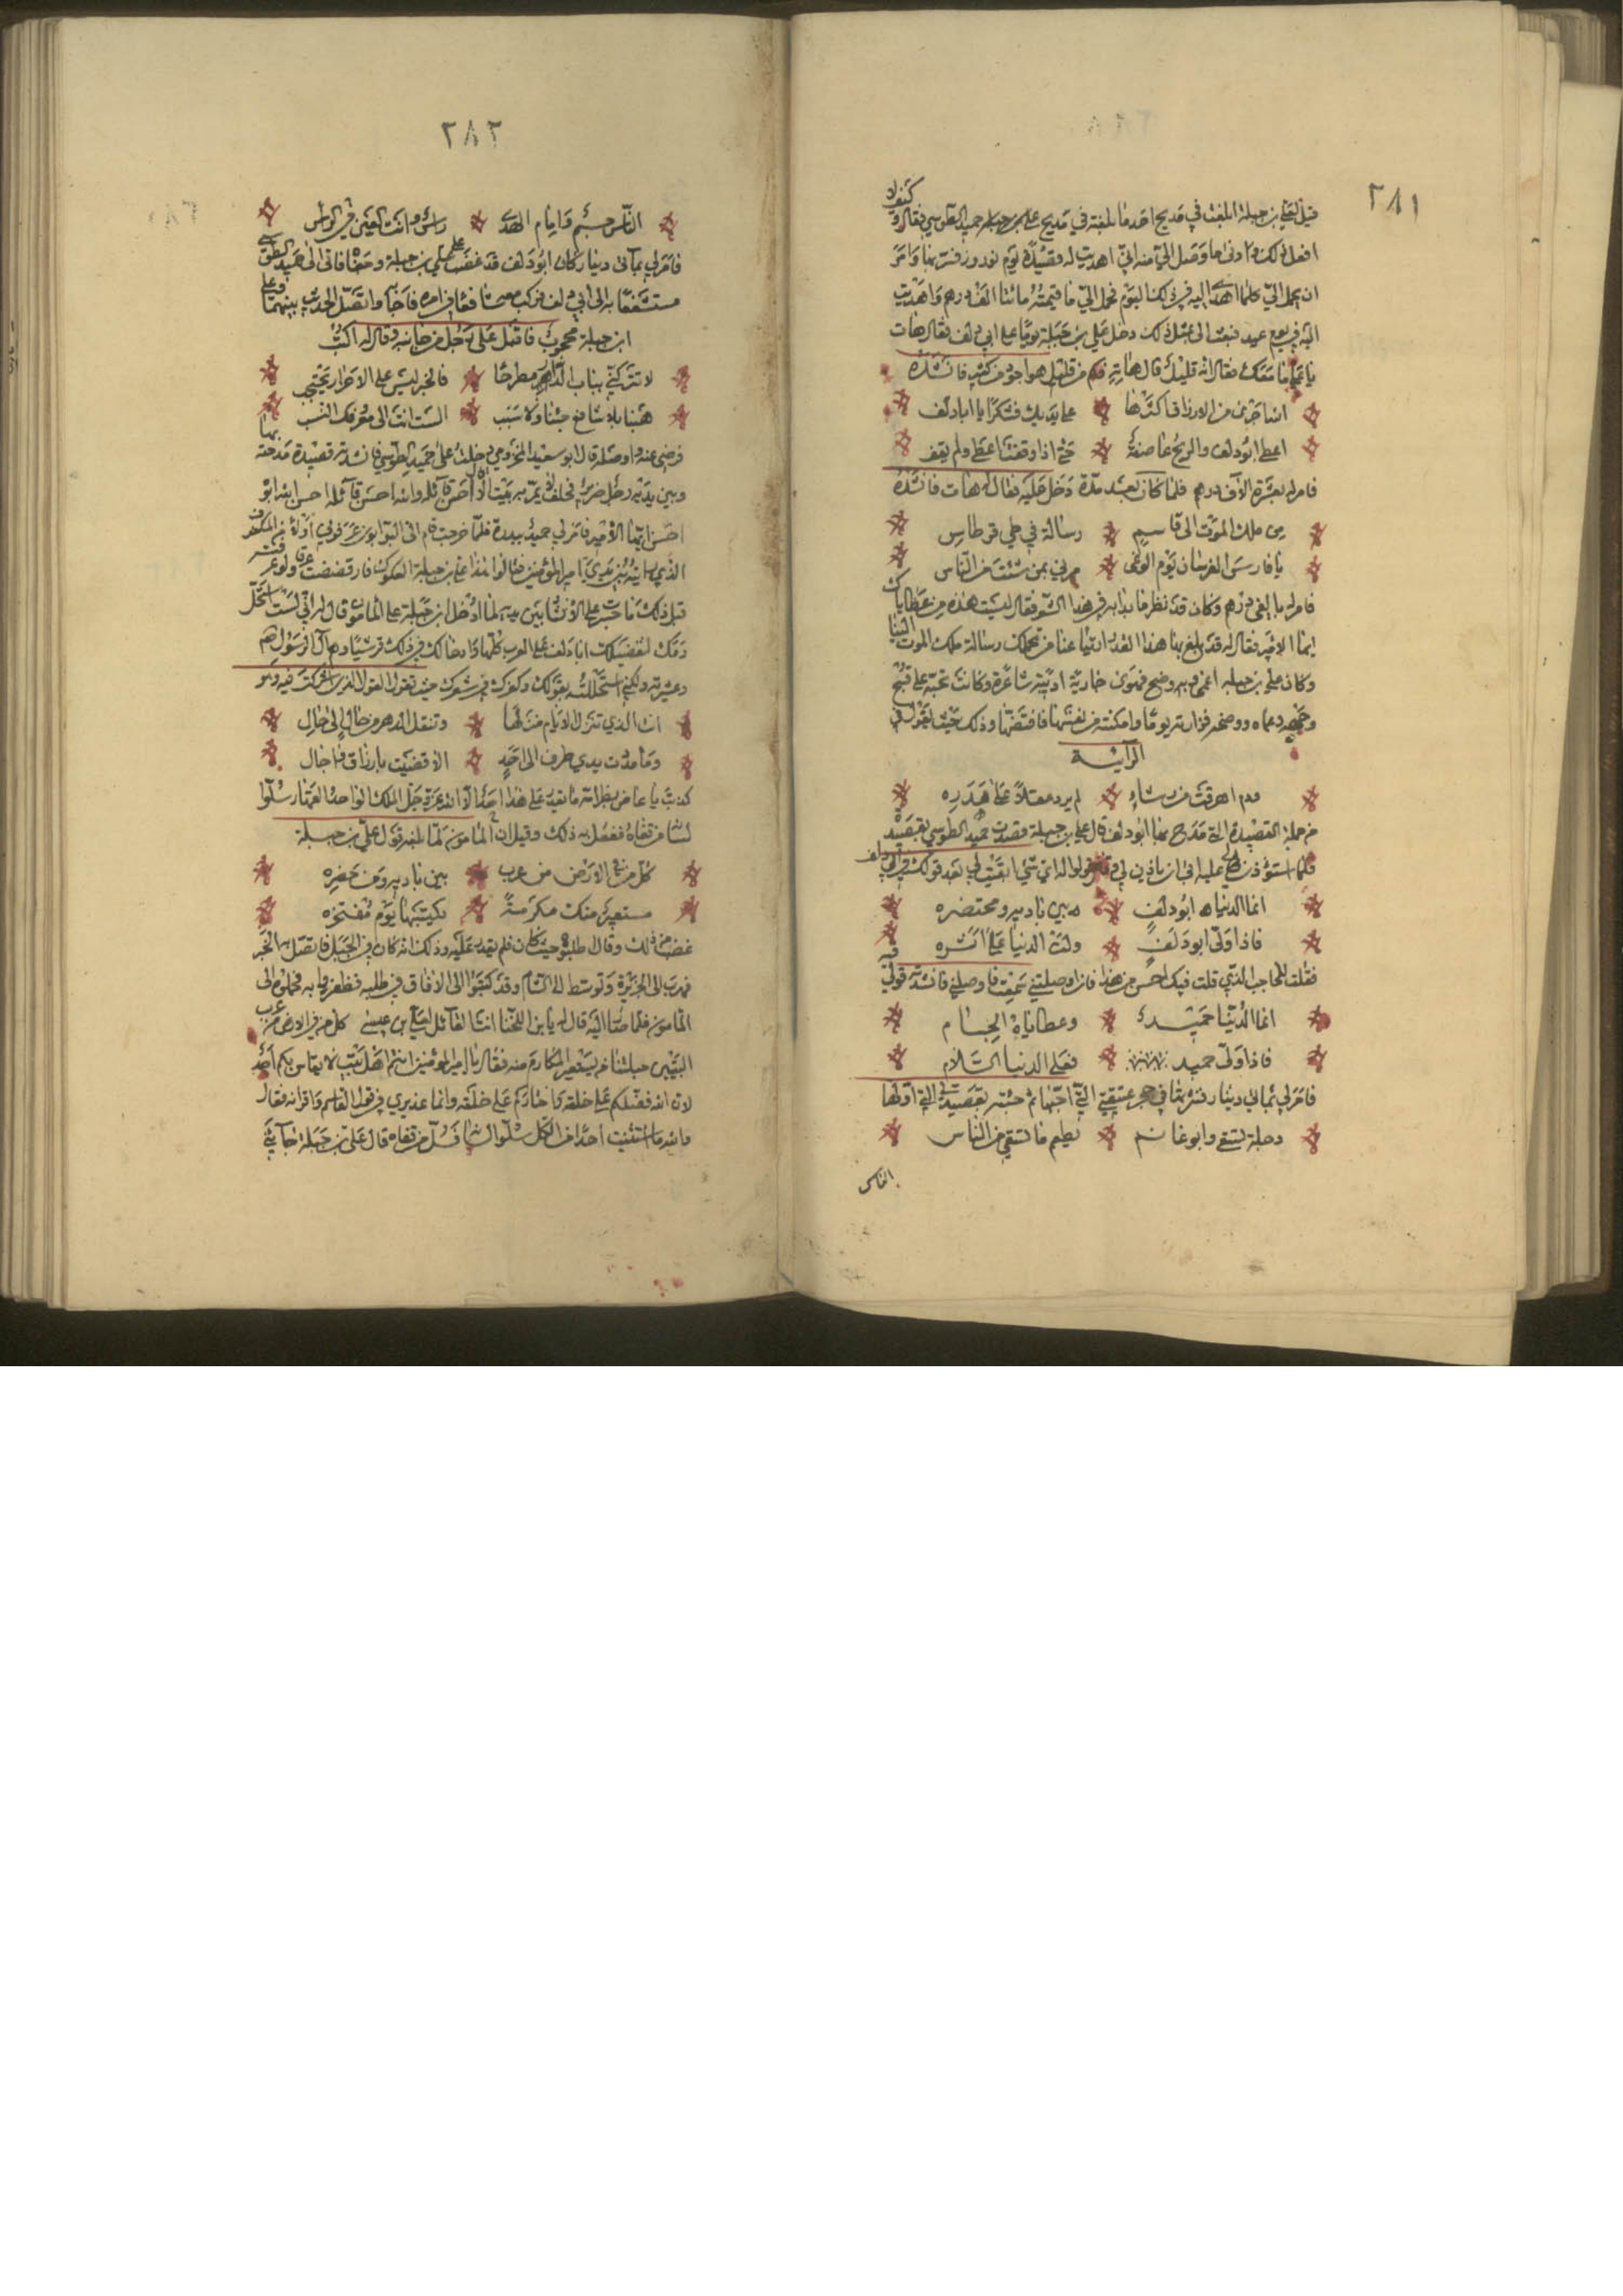 ٢٨١
قيل لعلي بن جبلة ما بلغت في مديح احد ما بلغته في مديح حميد الطوسي فقال وكيف لا
افعل ذلك وادنى ما وصل الي منه اني اهديت له قصيدة يوم نوروز فسر بها وامر
ان يحمل الي كلما اهدي اليه في ذلك اليوم فحمل الي ما قيمته مائتا الف درهم واهديت
اليه في يوم عيد فبعث الى بمثل ذلك دخل علي بن جبلة يوما على ابي دلف فقال هات
يا علي ما معك فقال انه قليل قال هاته فكم من قليل هو اجود من كثير فانشده
الله اجرى من الارزاق اكثرها على يديك فشكرا يا ابا دلف
اعطى ابو دلف والريح عاصفة حتى اذا وقفت اعطى ولم يقف
فامر له بعشرة الاف درهم فلما كان بعد مدة دخل عليه فقال له هات فانشده
من ملك الموت الى قاسم رسالة في طي قرطاس
يا فارس الفرسان يوم الوغى مرني بمن شئت من الناس
فامر له بالفي درهم وكان قد نظر ما بدا به في هذا الشعر فقال ليست هذه من عطاياك
ايها الامير فقال له قد بلغ بها هذا القدر ارتياعنا من تحملك رسالة ملك الموت الينا
وكان علي بن جبلة اعمى وبه وضح فهوى جارية اديبة شاعرة وكانت تحبه على قبح
وجهه وعماه ووضحه فزارته يوما وامكنته من نفسها فافتضها وذلك حيث يقول في
الرائية
ودم اهرقت من رشاء لم يرد عقلا على هدره
من جملة القصيدة التي مدح بها ابو دلف قال علي بن جبلة قصدت حميد الطوسي بقصيدة
فلما استؤذن لي عليه ابى ان ياذن لي وقال قولوا له اي شيء ابقيت لي بعد قولك في ابي دلف
انما الدنيا ابو دلف بين باديه ومحتضره
فاذا ولى ابو دلف ولت الدنيا على اثره
فقلت للحاجب الذي قلت فيك احسن من هذا فان وصلتني سمعته فاوصلني فانشدته قولي فيه
انما الدنيا حميد وعطاياه الجسام
فاذا ولى حميد فعلى الدنيا السلام
فامر لي بمائتي دينار فنثرتها في حجر عشيقتي ثم جئته بقصيدتي التي اولها
دجلة تسقي وابو غانم يطعم ما تسقي من الناس
الناس
٢٨٢
الناس جسم وامام الهدى راس وانت العين في الراس
فامر لي بمائتي دينار وكان ابو دلف قد غضب على علي بن جبلة وجفاه فاتى الى حميد الطوسي
مستشفعا به الى ابي دلف فركب معه شافعا في امره فاجابه واتصل الحديث بينهما وعلي
ابن جبلة محجوب فاقبل على رجل من جانبه وقال له اكتب
لا تتركني بباب الدار مطرحا فالحر ليس على الاحرار يحتجب
هبنا بلا شافع جئنا ولا سبب الست انت الى معروفك السبب
فرضي عنه واوصله قال ابو سعيد المخزومي دخلت على حميد الطوسي فانشدته قصيدة مدحته بها
وبين يديه رجل ضرير فجعل لا يمر به بيت الا قال احسن قاتله الله احسن قاتله الله احسن لله ابوه
احسن ايها الامير فامر لي حميد ببدرة فلما خرجت قام الي البوابون فقلت عرفوني اولا من المكفوف
الذي رايته بين يدي الامير فقالوا هذا علي بن جبلة العكوك فارفضضت عرقا ولو عرفته
قبل ذلك ما جسرت على الانشاد بين يديه لما ادخل ابن جبلة على المامون قال له اني لست استحل
دمك لتفضيلك ابا دلف على العرب كلها وادخالك في ذلك قريشا وهم آل الرسول صلعم
وعشيرته ولكني استحللته بقولك وكفرك في شعرك حيث تقول القول الذي اشركت فيه وهو
انت الذي تنزل الايام منزلها وتنقل الدهر من حال الى حال
وما مددت يدي طرف الى احد الا قضيت بارزاق واجال
كذبت يا عاض بظر امه ما يقدر على هذا احد الا الله عز وجل الملك الواحد القهار سلوا
لسانه من قفاه ففعل به ذلك وقيل ان المامون لما بلغه قول علي بن جبلة
كل من في الارض من عرب بين باديه ومن حضره
مستعير منك مكرمة يكتسيها يوم مفتخره
غضب من ذلك وقال اطلبوه حيث كان فلم يقدر عليه وذلك انه كان في الجبل فاتصل به الخبر
فهرب الى الجزيرة وتوسط الى الشام وقد كتبوا الى الافاق في طلبه فظفروا به فحملوه الى
المامون فلما صار اليه قال له يا بن اللخنا انت القائل للقاسم بن عيسى كل من في الارض من عرب
البيتين جعلتنا ممن يستعير المكارم منه فقال يا امير المؤمنين انتم اهل بيت لا يقاس بكم احد
لان الله فضلكم على خلقه واختاركم على خلقه وانما عنيت في قولي القاسم واقرانه فقال
والله ما استثنيت احدا من الكل سلوا لسانه فسل من قفاه قال علي بن جبلة جاتني